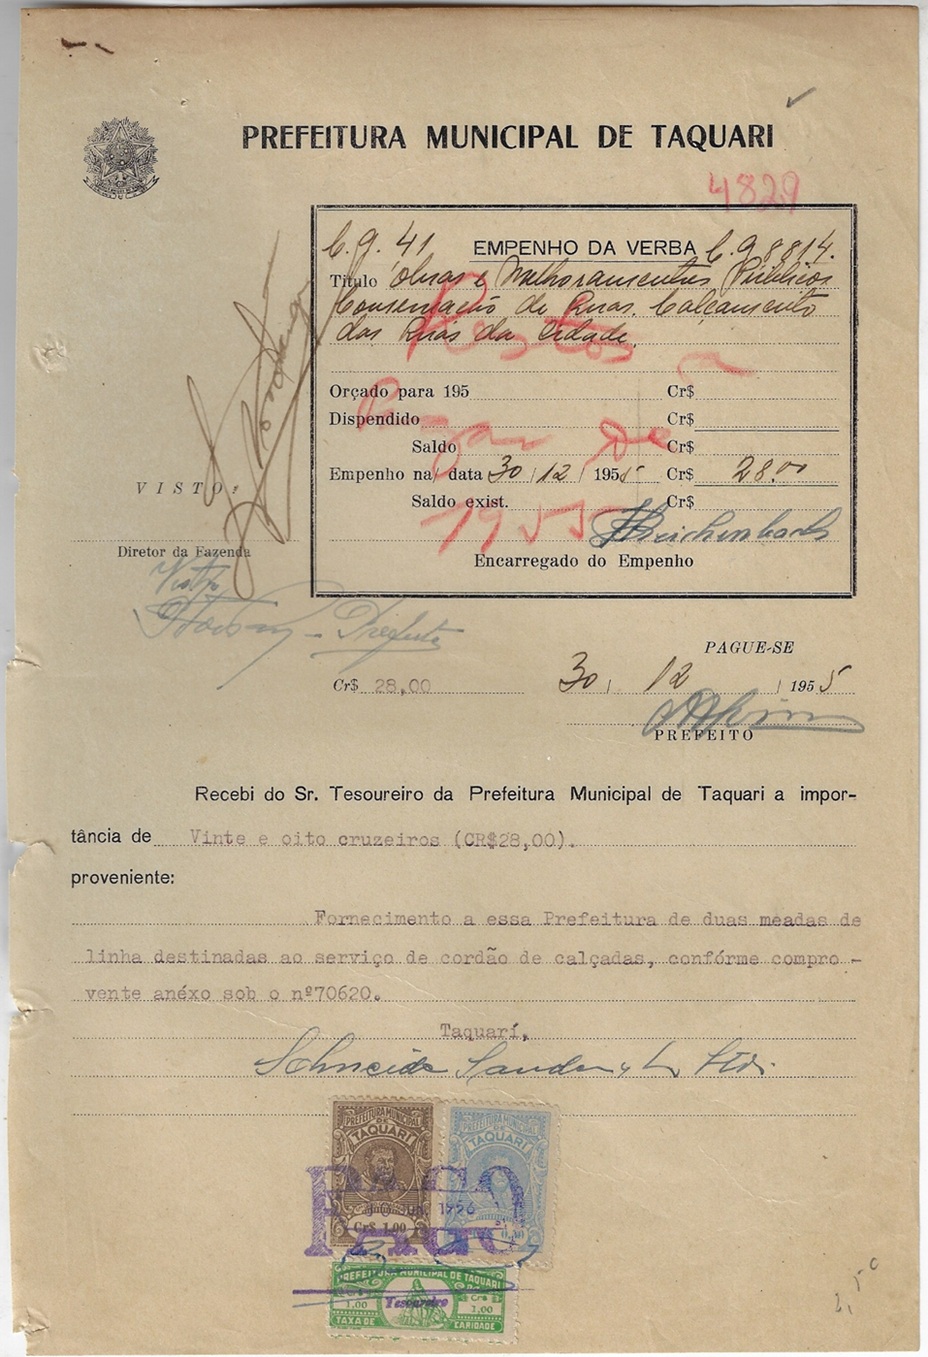 PREFEITURA MUNICIPAL DE TAQUARI
4829
C.g. 41 EMPENHO DA VERBA C.g 8814.
Título Obras e Melhoramentos Públicos
Conservação de Ruas. Calçamento
das Ruas da Cidade.
Restos a
Pagar de
1955
Orçado para 195 Cr$
Dispendido Cr$
Saldo Cr$
Empenho na data 30 | 12 | 1955 Cr$ 28.00
Saldo exist. Cr$
Encarregado do Empenho
VISTO:
Diretor da Fazenda
Visto
Prefeito
PAGUE-SE
Cr$ 28,00 30 | 12 | 1955
PREFEITO
Recebi do Sr. Tesoureiro da Prefeitura Municipal de Taquari a impor-
tância de Vinte e oito cruzeiros (CR$28,00).
proveniente:
Fornecimento a essa Prefeitura de duas meadas de
linha destinadas ao serviço de cordão de calçadas, confórme compro -
vente anéxo sob o nº70620.
Taquarí,
Schneider Ltda.
PREFEITURA MUNICIPAL
DE
TAQUARI
Cr$ 1,00
PREFEITURA MUNICIPAL
DE
TAQUARI
PAGO
1956
PAGO
PREFEITURA MUNICIPAL DE TAQUARI
Cr$ 1,00 Tesoureiro Cr$ 1,00
TAXA DE CARIDADE
2,50